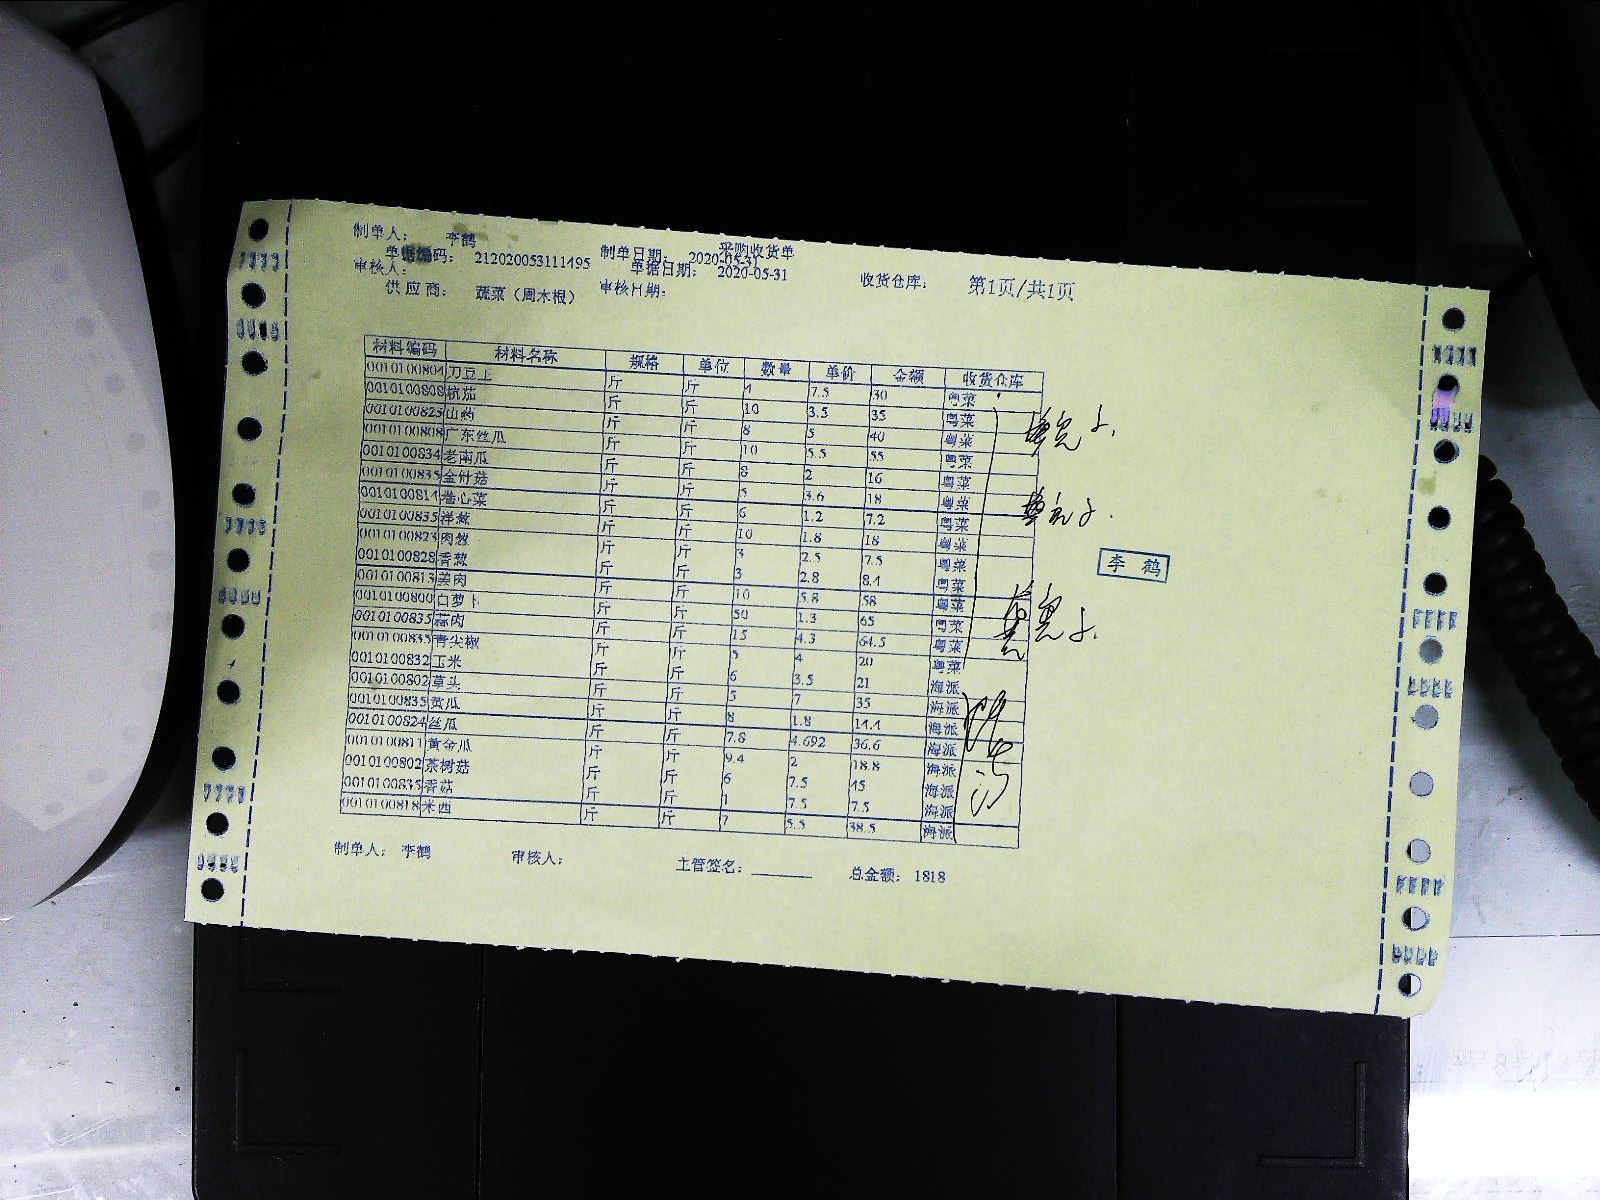 采购收货单
制单人： 李鹤 制单日期： 2020-05-31
单据编码： 212020053111495 单据日期： 2020-05-31 收货仓库： 第1页/共1页
审核人： 审核日期：
供应商： 蔬菜（周木根）
材料编码 材料名称 规格 单位 数量 单价 金额 收货仓库
0010100804 刀豆上 斤 斤 4 7.5 30 粤菜
0010100808 杭茄 斤 斤 10 3.5 35 粤菜
0010100825 山药 斤 斤 8 5 40 粤菜
0010100808 广东丝瓜 斤 斤 10 5.5 55 粤菜
0010100834 老南瓜 斤 斤 8 2 16 粤菜
0010100835 金针菇 斤 斤 5 3.6 18 粤菜
0010100814 卷心菜 斤 斤 6 1.2 7.2 粤菜
0010100835 洋葱 斤 斤 10 1.8 18 粤菜
0010100823 肉葱 斤 斤 3 2.5 7.5 粤菜
0010100828 香葱 斤 斤 3 2.8 8.4 粤菜
0010100813 姜肉 斤 斤 10 5.8 58 粤菜
0010100800 白萝卜 斤 斤 50 1.3 65 粤菜
0010100835 蒜肉 斤 斤 15 4.3 64.5 粤菜
0010100835 青尖椒 斤 斤 5 4 20 粤菜
0010100832 玉米 斤 斤 6 3.5 21 海派
0010100802 草头 斤 斤 5 7 35 海派
0010100835 黄瓜 斤 斤 8 1.8 14.4 海派
0010100824 丝瓜 斤 斤 7.8 4.692 36.6 海派
0010100811 黄金瓜 斤 斤 9.4 2 18.8 海派
0010100802 茶树菇 斤 斤 6 7.5 45 海派
0010100835 香菇 斤 斤 1 7.5 7.5 海派
0010100818 米西 斤 斤 7 5.5 38.5 海派
李鹤
制单人： 李鹤 审核人： 主管签名： 总金额： 1818